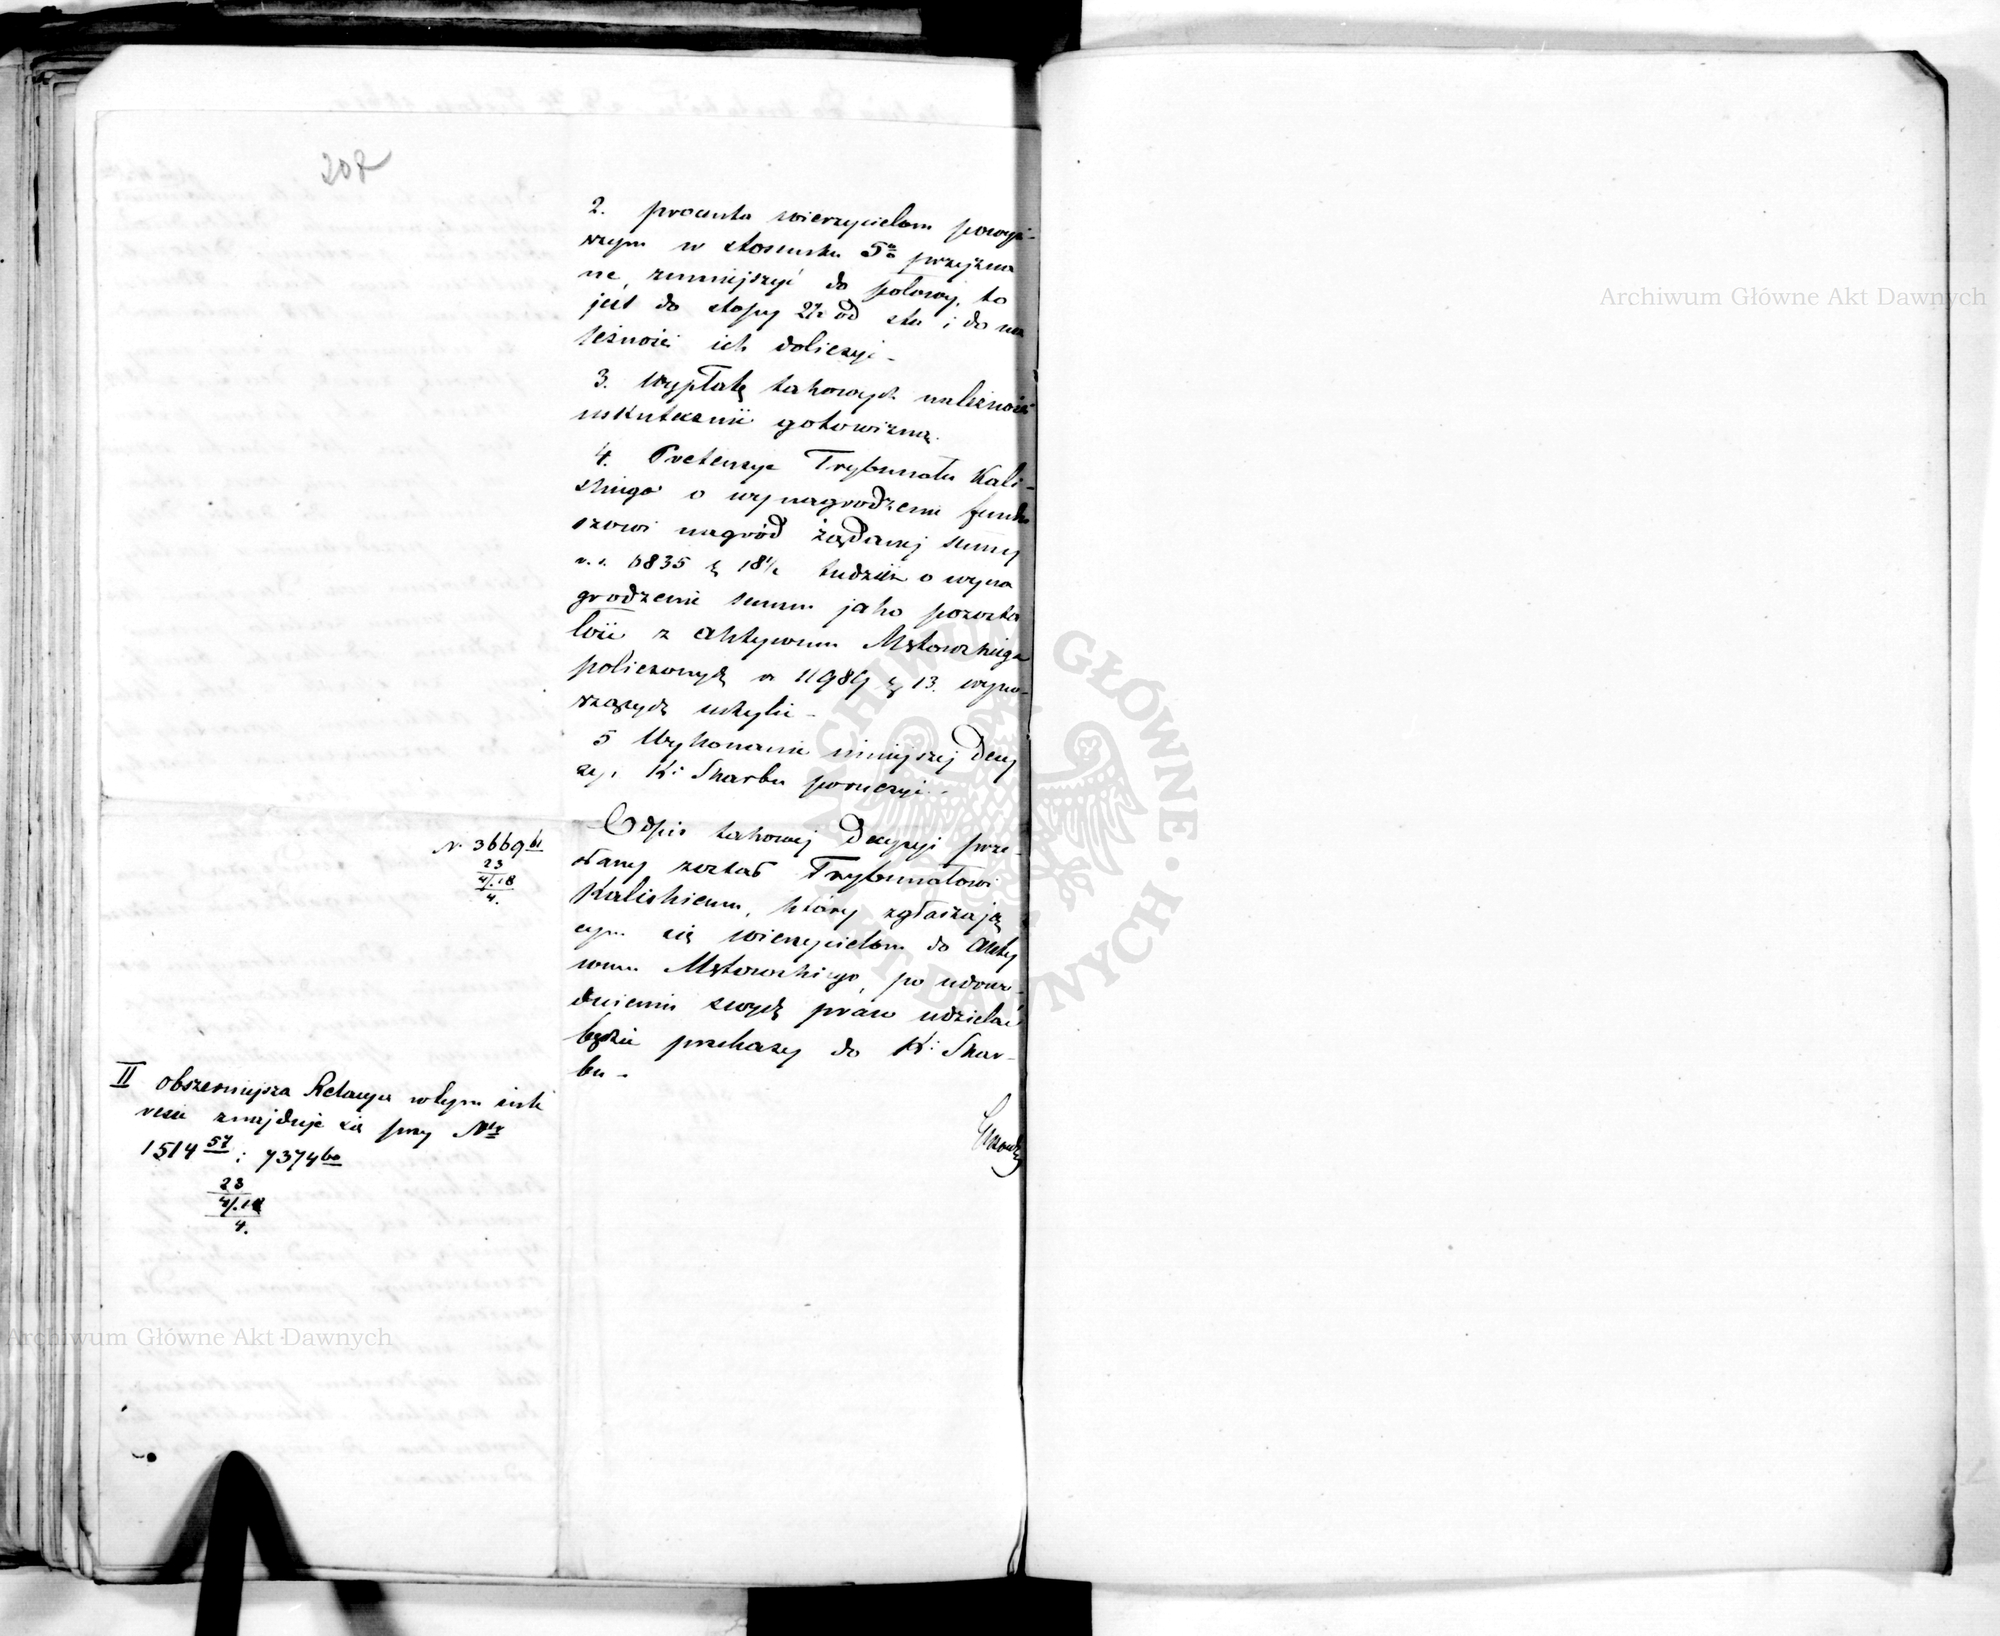 208
2. procenta wierzycielom powyż-
szym w stosunku 5% przyzna
ne, zmniejszyć do połowy, to
jest do stopy 2½ od sta i do na
leżności ich doliczyć -
3. Wypłatę takowych należności
uskutecznić gotowizną.
4. Pretensye Trybunału Kali-
skiego o wynagrodzenie fundu
szowi nagród żądanej summy
r. s. 6835 k 18½ tudzież o wyna
grodzenie summ jako pozosta
łość z aktywum Mstowskiego
policzonych rs 11989 k 13. wyno-
szących uchylić -
5 Wykonanie niniejszej Decy
zyi K: Skarbu poruczyć. -
Odpis takowej Decyzyi prze-
słany został Trybunałowi
Kaliskiemu, który zgłaszają
cym się wierzycielom do Akty
wum Mstowskiego, po udowo-
dnieniu swych praw udzielać
będzie przekazy do K: Skar-
bu -
N. 3669 61
23
4/.18
4.
II obszerniejsza Relacya w tym inte
resie znajduje się przy Nrze
1514 57 i 7374 60
23
4/.18
4.
Archiwum Główne Akt Dawnych
Archiwum Główne Akt Dawnych
ARCHIWUM GŁÓWNE AKT DAWNYCH